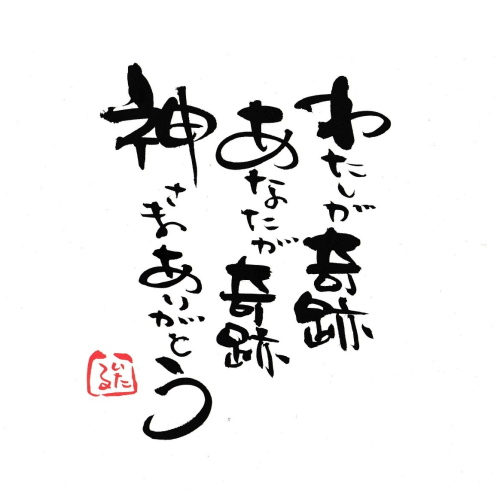 わたしが奇跡
あなたが奇跡
神さまありがとう
いたる